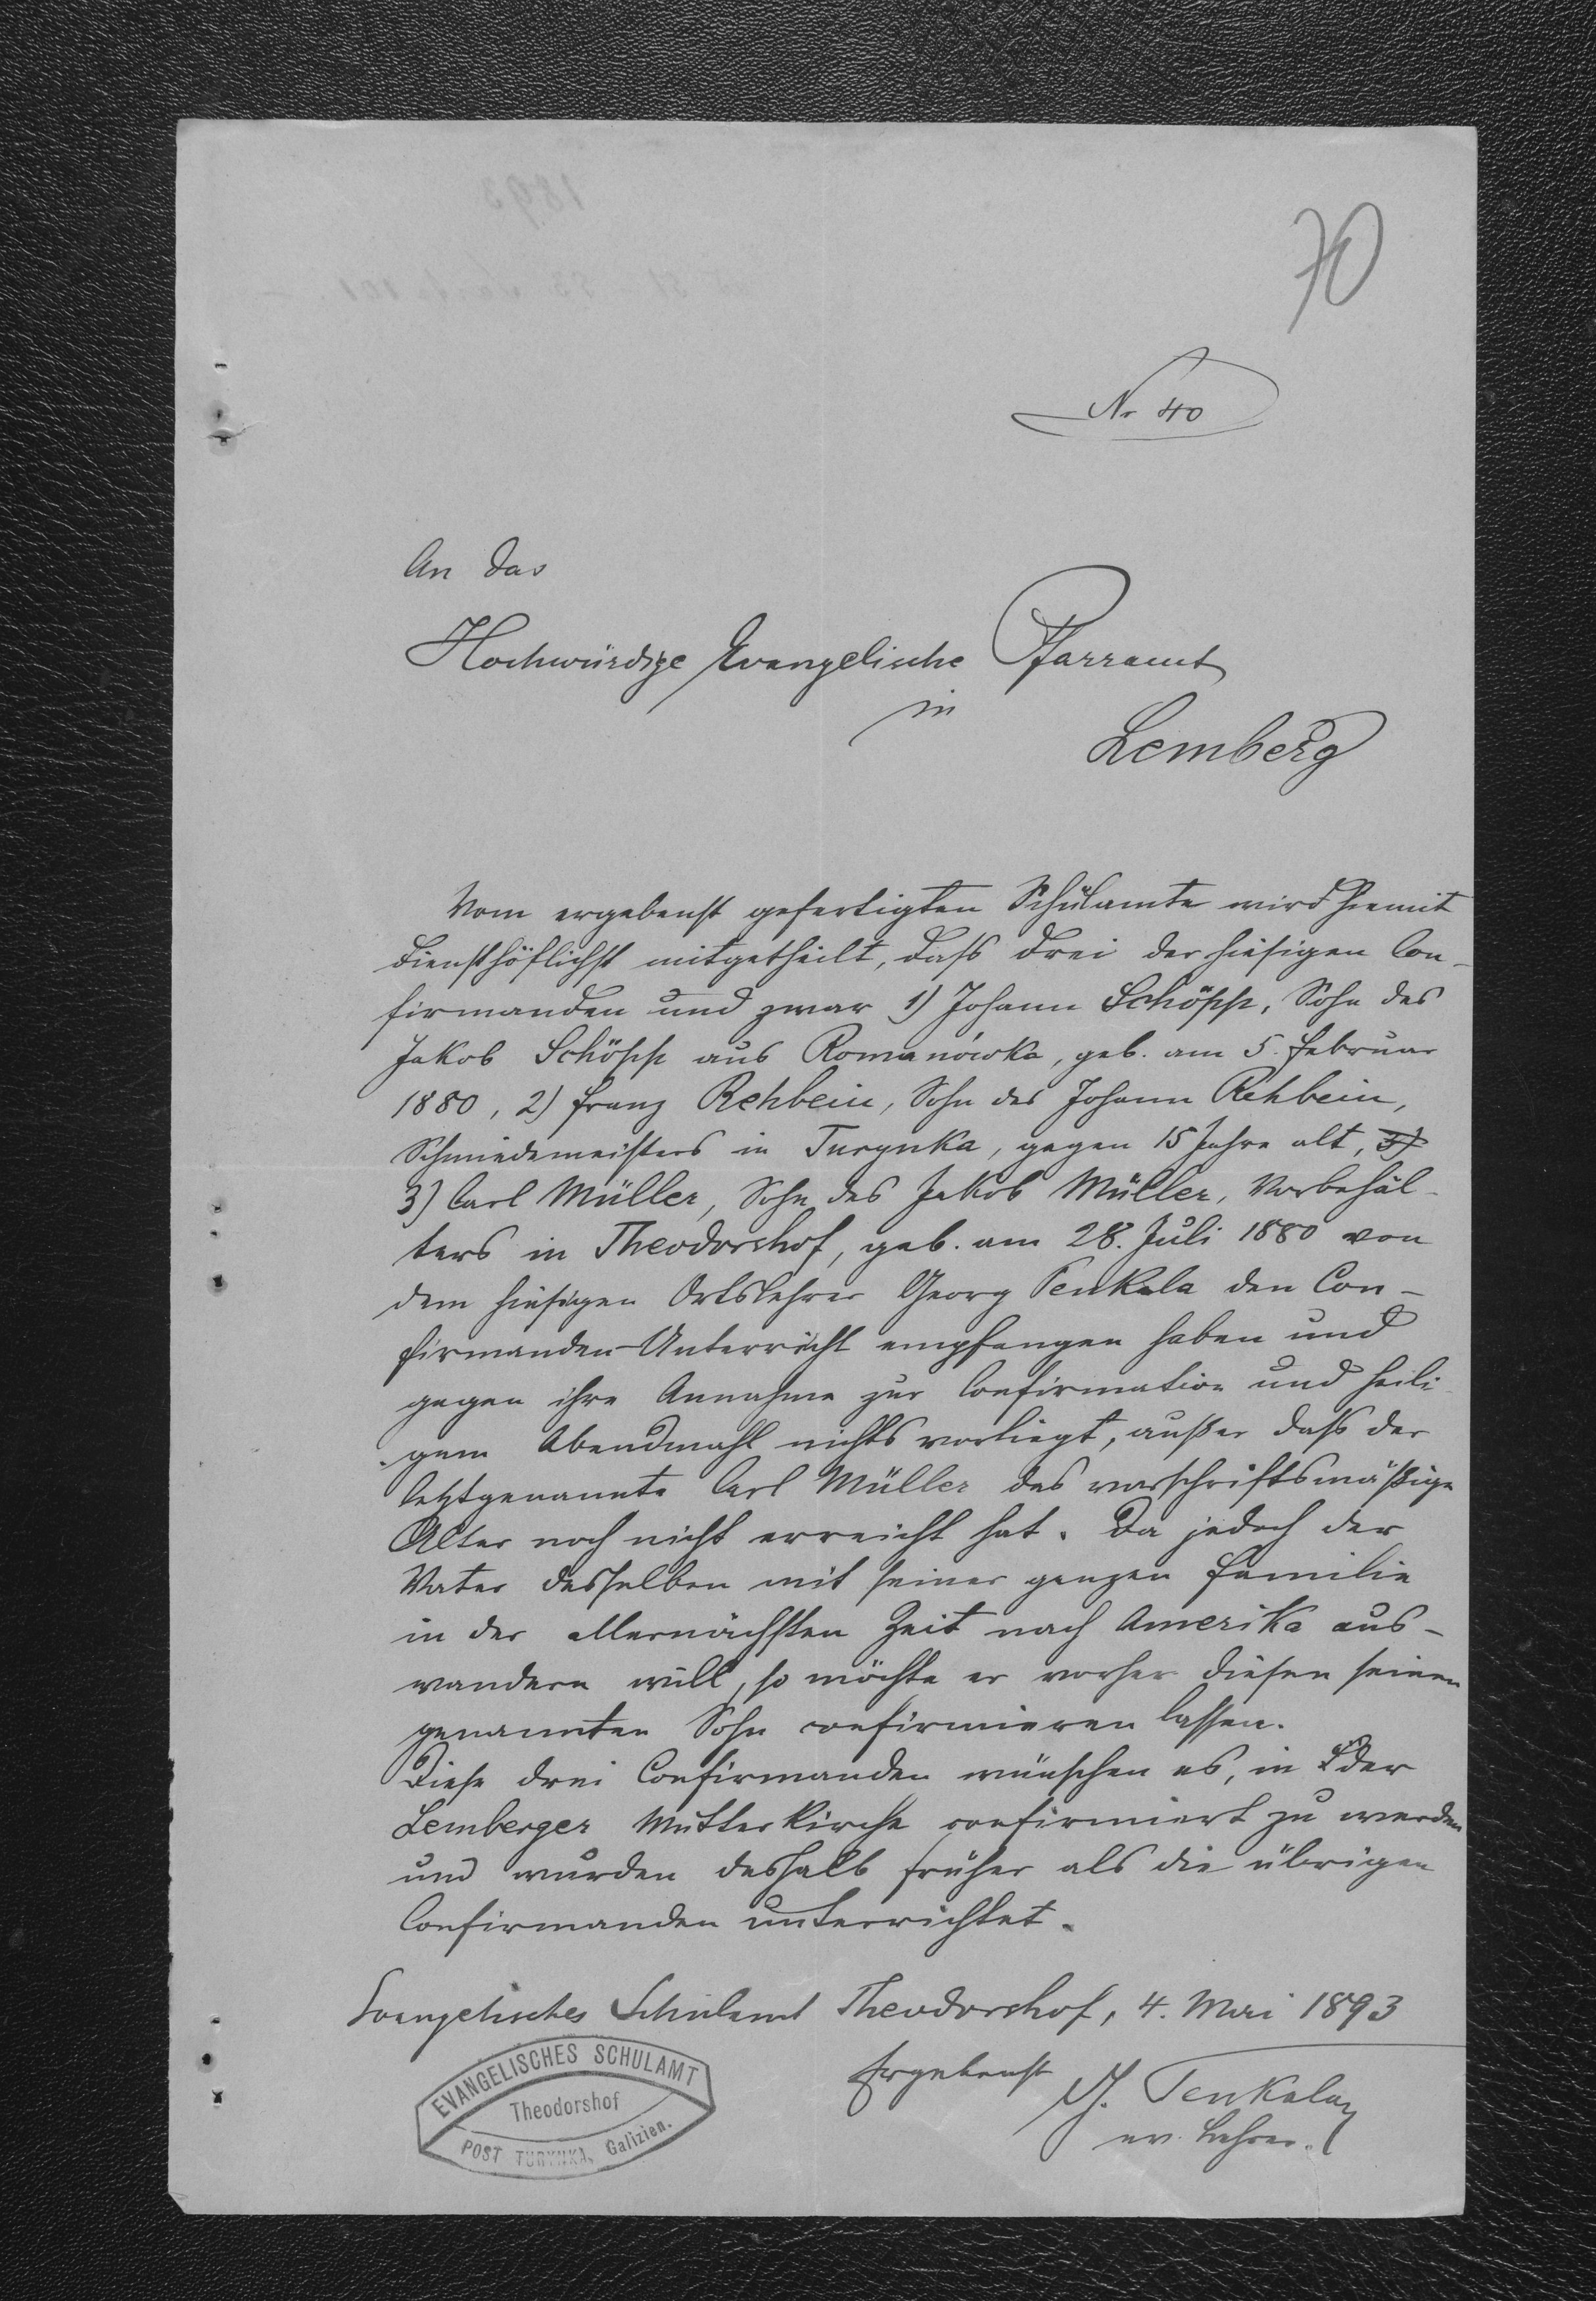 1893
70
Nr 40
An das
Hochwürdige Evangelische Pfarramt
in
Lemberg
Vom ergebenst gefertigten Schulamte wird hiemit
diensthöflichst mitgetheilt, dass drei der hiesigen Con-
firmanden und zwar 1) Johann Schöpp, Sohn des
Jakob Schöpp aus Romanówka, geb. am 5. Februar
1880, 2) Franz Rehbein, Sohn des Johann Rehbein,
Schmiedemeisters in Turynka, gegen 15 Jahre alt, 3)
3) Carl Müller, Sohn des Jakob Müller, Vorbehäl-
ters in Theodorshof, geb. am 28. Juli 1880 von
dem hiesigen Ortslehrer Georg Tenkala den Con-
firmanden-Unterricht empfangen haben und
gegen ihre Annahme zur Confirmation und heili-
gem Abendmahl nichts vorliegt, außer daß der
letztgenannte Carl Müller das vorschriftsmäßige
Alter noch nicht erreicht hat. Da jedoch der
Vater desselben mit seiner ganzen Familie
in der allernächsten Zeit nach Amerika aus-
wandern will, so möchte er vorher diesen seinen
genannten Sohn confirmieren lassen.
Diese drei Confirmanden wünschen es, in der
Lemberger Mutterkirche confirmiert zu werden
und wurden deshalb früher als die übrigen
Confirmanden unterrichtet.
Evangelisches Schulamt Theodorshof, 4. Mai 1893
Ergebenst
G. Tenkala
ev. Lehrer.
EVANGELISCHES SCHULAMT
Theodorshof
POST TURYNKA, Galizien.